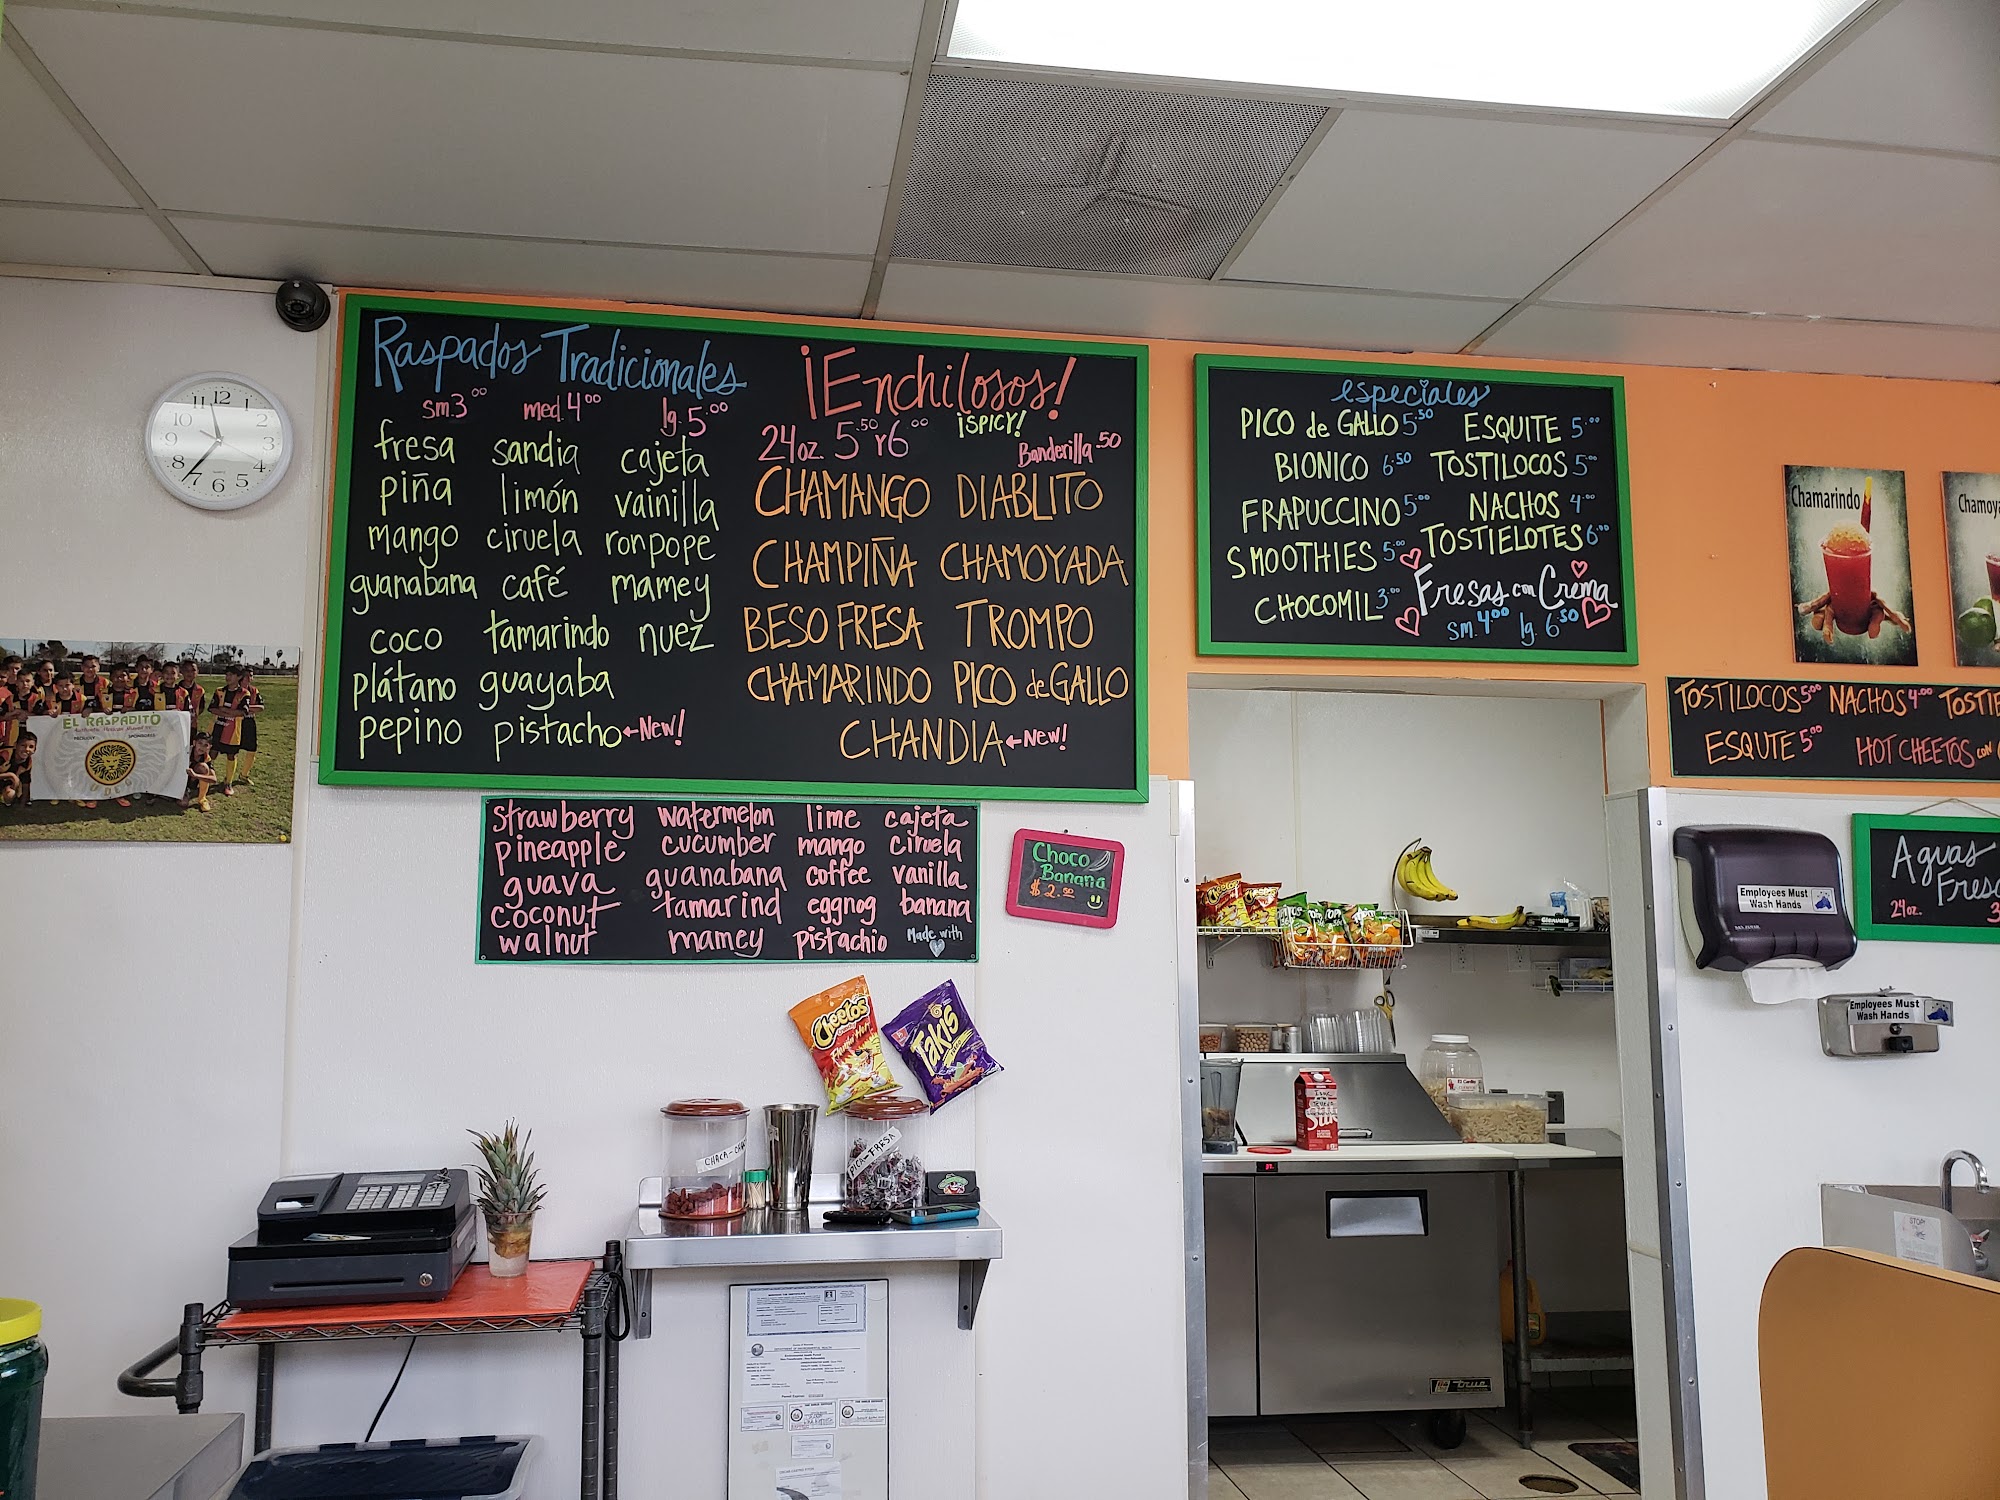 Raspados Tradicionales
sm. 3.00 med. 4.00 lg. 5.00
fresa sandia cajeta
piña limón vainilla
mango ciruela ronpope
guanabana café mamey
coco tamarindo nuez
plátano guayaba
pepino pistacho ←New!
¡Enchilosos!
¡SPICY!
24oz. 5.50 Y 6.00 Banderilla .50
CHAMANGO DIABLITO
CHAMPIÑA CHAMOYADA
BESO FRESA TROMPO
CHAMARINDO PICO de GALLO
CHANDIA ←New!
especiales
PICO de GALLO 5.50 ESQUITE 5.00
BIONICO 6.50 TOSTILOCOS 5.00
FRAPUCCINO 5.00 NACHOS 4.00
SMOOTHIES 5.00 TOSTIELOTES 6.00
CHOCOMIL 3.00 Fresas con Crema
sm. 4.00 lg. 6.50
strawberry watermelon lime cajeta
pineapple cucumber mango ciruela
guava guanabana coffee vanilla
coconut tamarind eggnog banana
walnut mamey pistachio Made with
Choco
Banana
$2.50
Chamarindo
Chamoya
TOSTILOCOS 5.00 NACHOS 4.00 TOSTIE
ESQUTE 5.00 HOT CHEETOS con
Aguas
Fresc
24oz. 3
Employees Must
Wash Hands
Employees Must
Wash Hands
EL RASPADITO
11 12 1
10 2
9 3
8 4
7 6 5
Cheetos
Flamin' Hot
Takis
CHACA-CHA
PICA-FRESA
true
STOP